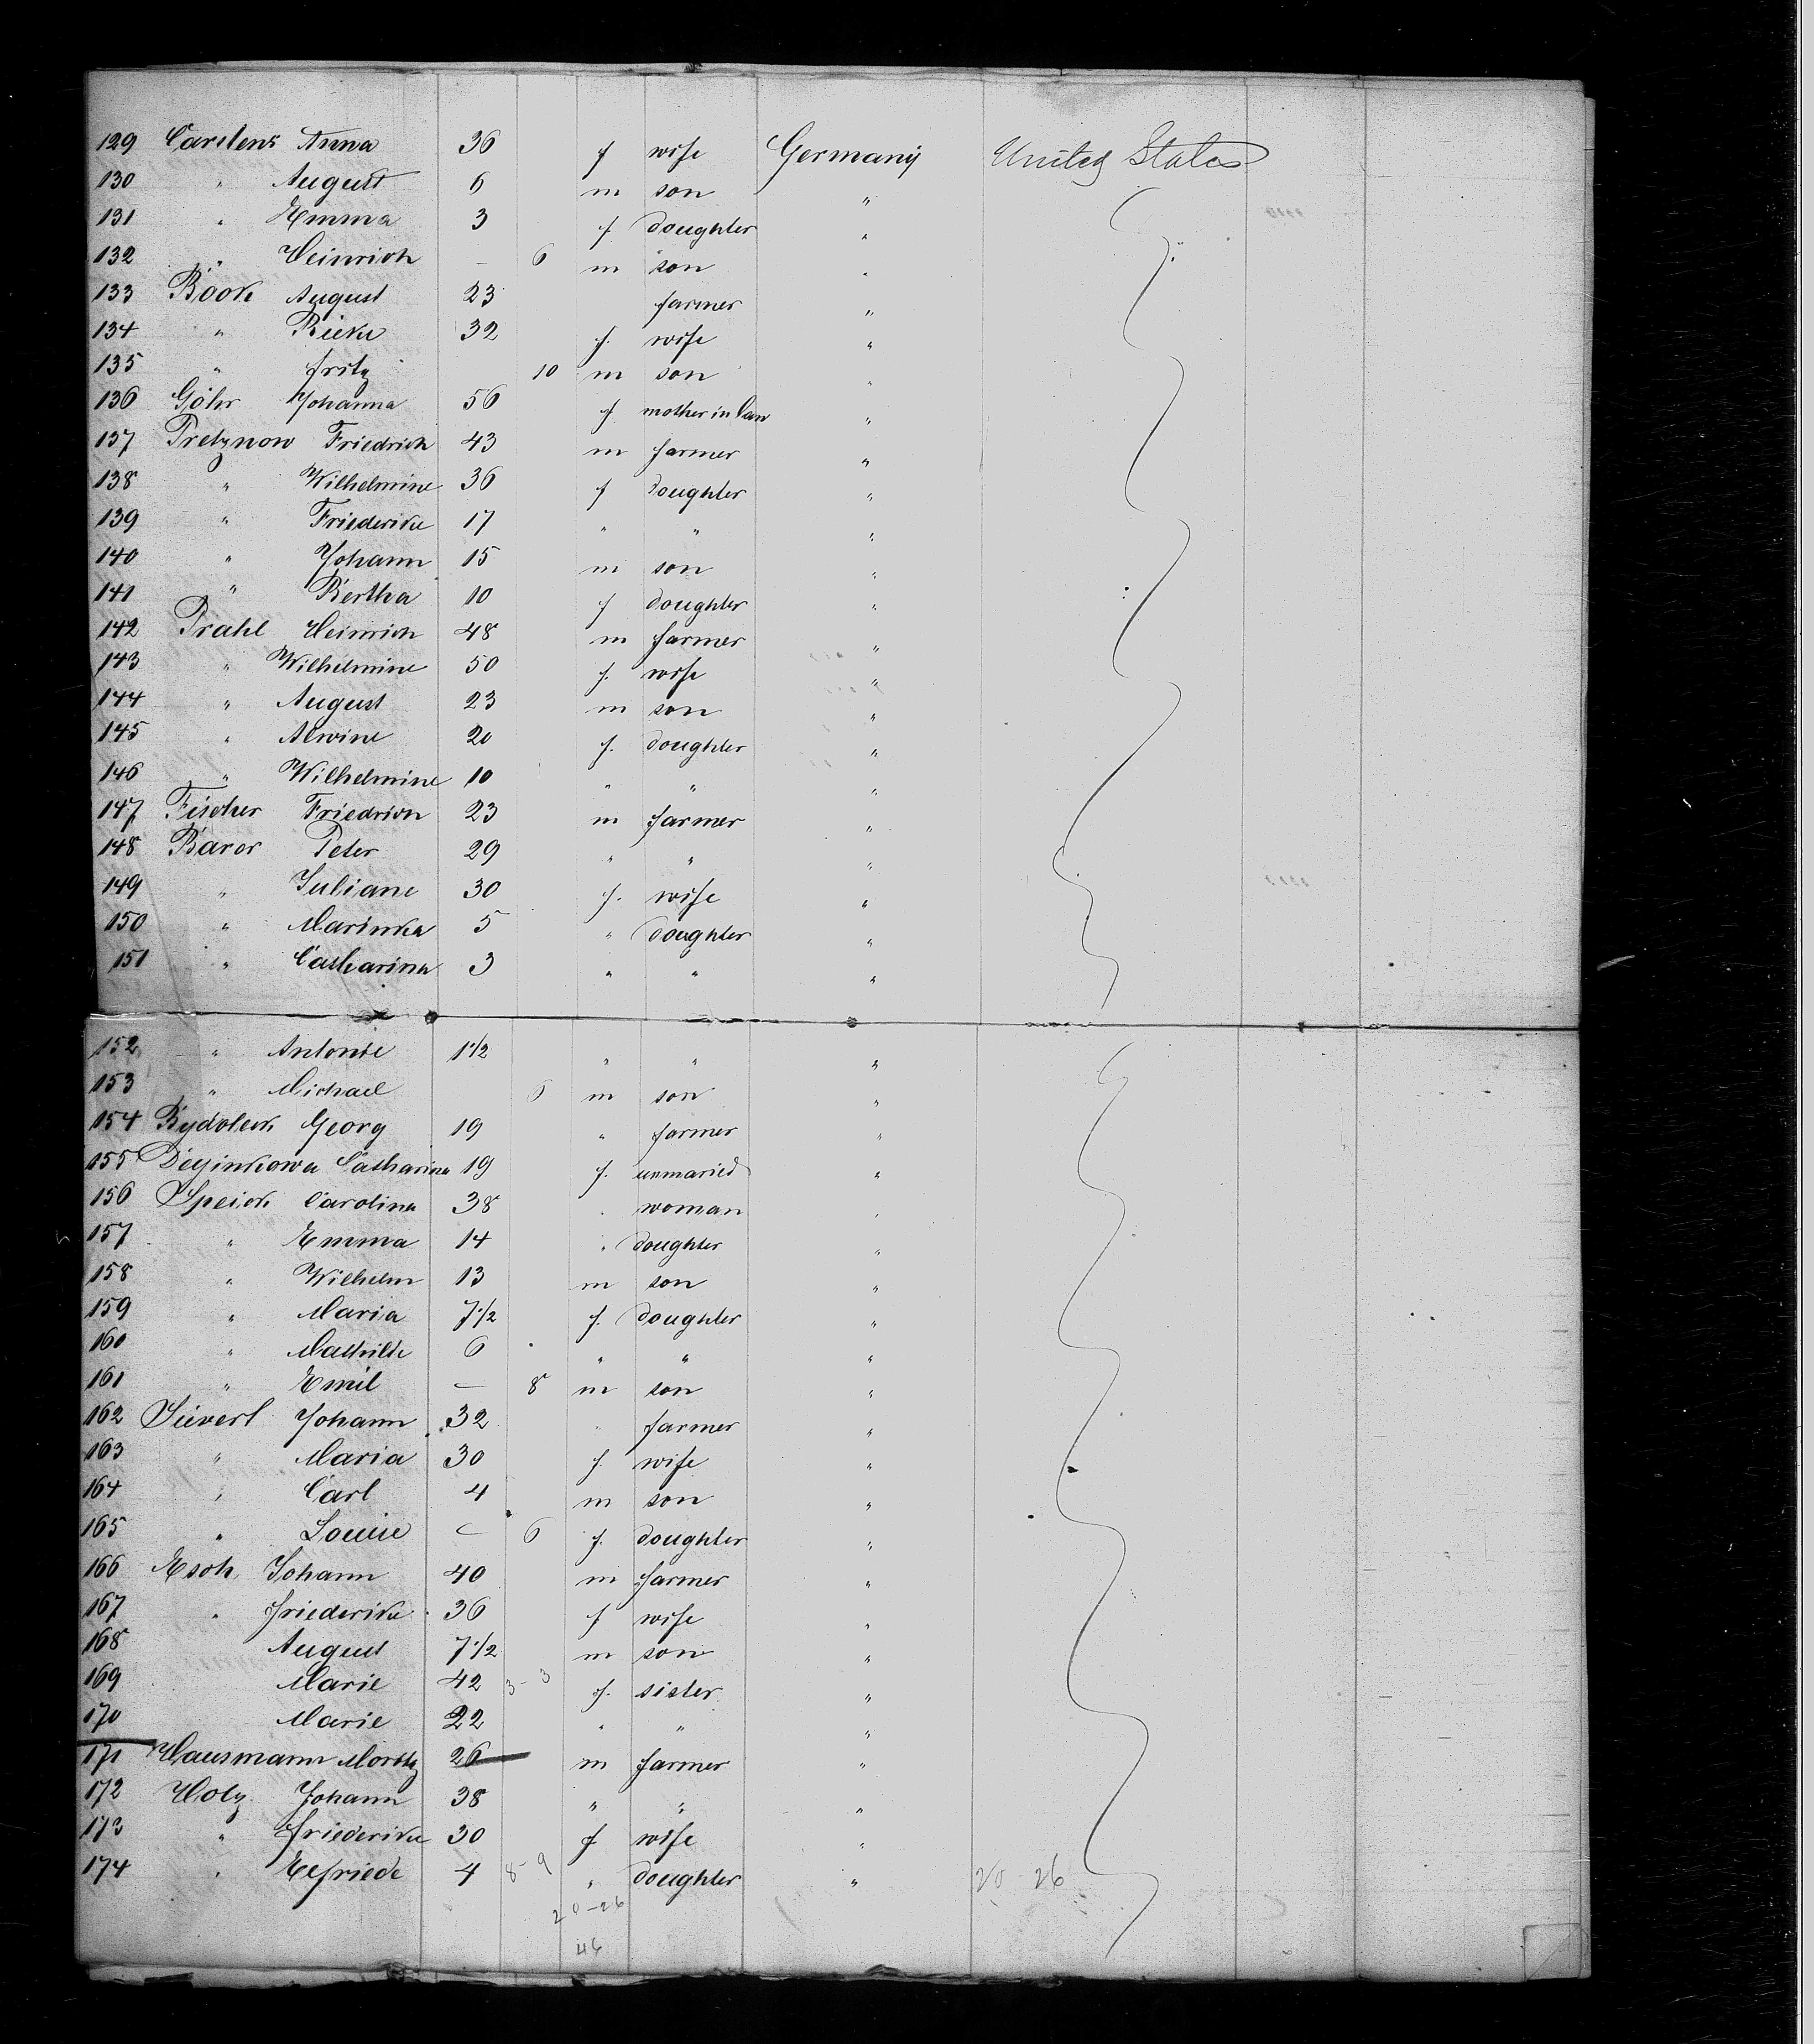 129 Carstens Anna 36 f wife Germany United States
130 " August 6 m son "
131 " Emma 3 f doughter "
132 " Heinrich — 6 m son "
133 Böök August 23 farmer "
134 " Rieke 32 f. wife "
135 " fritz 10 m son "
136 Göhr Johanna 56 f. mother in law "
137 Pretznow Friedrich 43 m farmer "
138 " Wilhelmine 36 f doughter "
139 " Friederike 17 " " "
140 " Johann 15 m son "
141 " Bertha 10 f doughter "
142 Prahl Heinrich 48 m farmer "
143 " Wilhelmine 50 f. wife "
144 " August 23 m son "
145 " Alwine 20 f. doughter "
146 " Wilhelmine 10 " " "
147 Fischer Friedrich 23 m farmer "
148 Baror Peter 29 " " "
149 " Juliane 30 f. wife "
150 " Marinka 5 " doughter "
151 " Catharina 3 " " "
152 " Antonie 1 1/2 " " "
153 " Michael 6 m son "
154 Rydoleck Georg 19 " farmer "
155 Catharina 19 f. unmaried "
156 Speich Carolina 38 " woman "
157 " Emma 14 " doughter "
158 " Wilhelm 13 m son "
159 " Maria 7 1/2 f. doughter "
160 " Mathilde 6 " " "
161 " Emil — 8 m son "
162 Sievert Johann 32 " farmer "
163 " Maria 30 f. wife "
164 " Carl 4 m son "
165 " Louise — 6 f. doughter "
166 Esch Johann 40 m farmer "
167 " friederike 36 f wife "
168 August 7 1/2 m son "
169 Marie 42 3-3 f. sister "
170 Marie 22 " " "
171 Hausmann Moritz 26 m farmer "
172 Holz Johann 38 " " "
173 " friederike 30 f wife "
174 " Elfriede 4 8-9 " doughter " 20-26
20-26
46